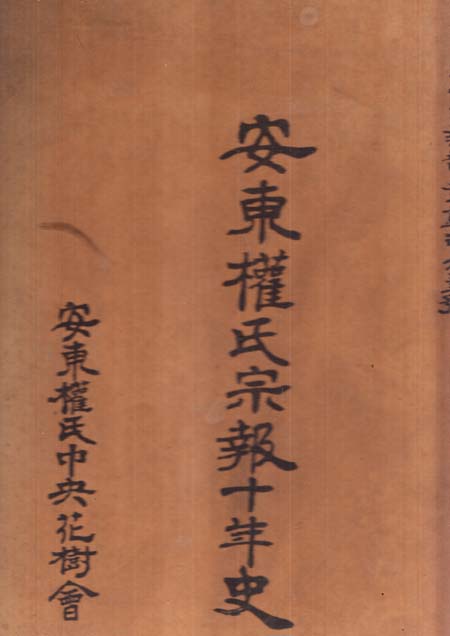 安東權氏宗報十年史
安東權氏中央花樹會